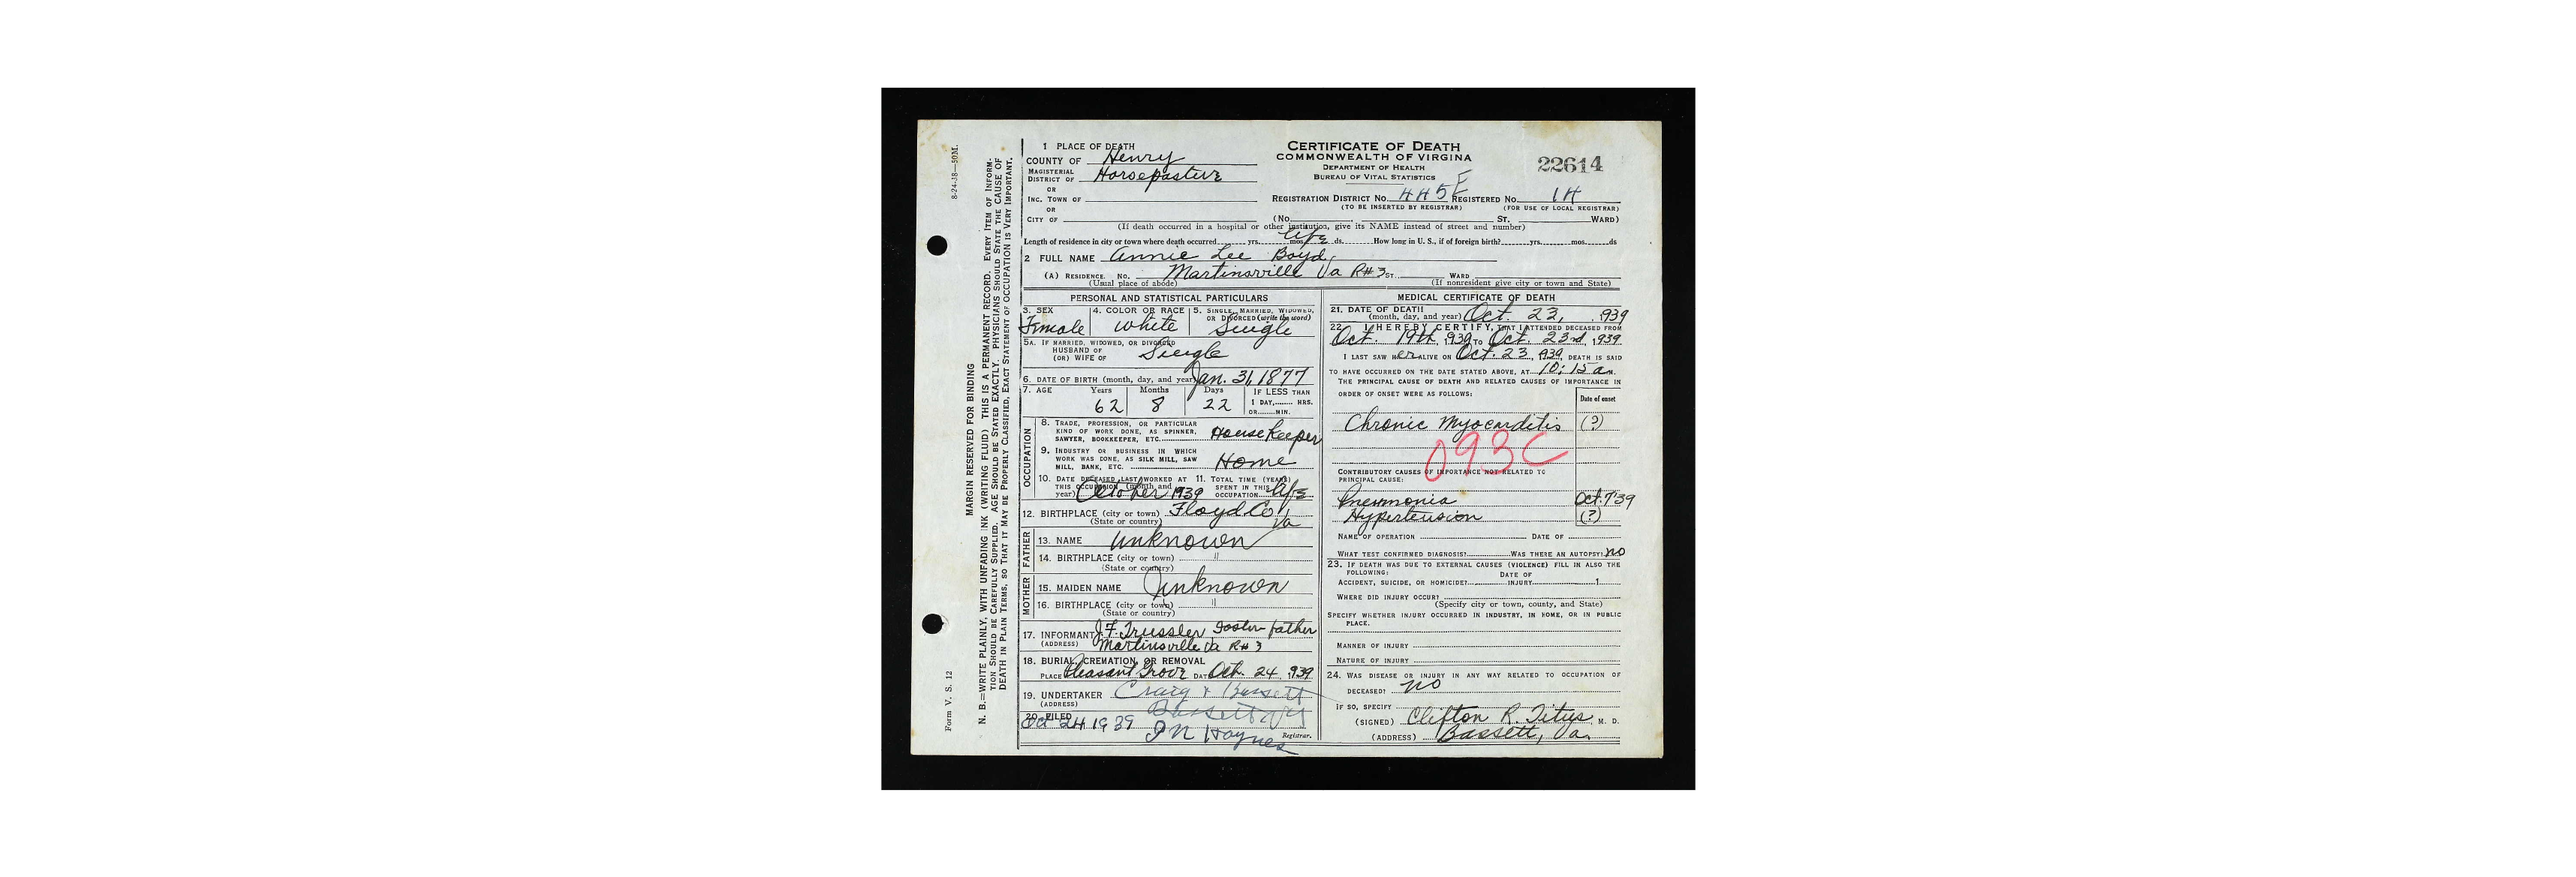 8-24-38—50M.
MARGIN RESERVED FOR BINDING
N. B.—WRITE PLAINLY, WITH UNFADING INK (WRITING FLUID) THIS IS A PERMANENT RECORD. EVERY ITEM OF INFORM-
TION SHOULD BE CAREFULLY SUPPLIED. AGE SHOULD BE STATED EXACTLY. PHYSICIANS SHOULD STATE THE CAUSE OF
DEATH IN PLAIN TERMS, SO THAT IT MAY BE PROPERLY CLASSIFIED, EXACT STATEMENT OF OCCUPATION IS VERY IMPORTANT.
Form V. S. 12
CERTIFICATE OF DEATH
COMMONWEALTH OF VIRGINA
DEPARTMENT OF HEALTH
BUREAU OF VITAL STATISTICS
22614
1 PLACE OF DEATH
COUNTY OF Henry
MAGISTERIAL DISTRICT OF Horsepasture
OR
INC. TOWN OF
OR
CITY OF
REGISTRATION DISTRICT NO. 445E REGISTERED NO. 14
(TO BE INSERTED BY REGISTRAR) (FOR USE OF LOCAL REGISTRAR)
(NO. ST. WARD)
(If death occurred in a hospital or other institution, give its NAME instead of street and number)
Length of residence in city or town where death occurred yrs. mos. life ds. How long in U. S., if of foreign birth? yrs. mos. ds
2 FULL NAME Annie Lee Boyd
(A) RESIDENCE. NO. Martinsville Va R#3 ST. WARD
(Usual place of abode) (If nonresident give city or town and State)
PERSONAL AND STATISTICAL PARTICULARS
3. SEX Female
4. COLOR OR RACE White
5. SINGLE, MARRIED, WIDOWED, OR DIVORCED (write the word) Single
5A. IF MARRIED, WIDOWED, OR DIVORCED
HUSBAND OF
(OR) WIFE OF Single
6. DATE OF BIRTH (month, day, and year) Jan. 31, 1877
7. AGE Years Months Days IF LESS THAN
62 8 22 1 DAY, HRS.
OR MIN.
OCCUPATION
8. TRADE, PROFESSION, OR PARTICULAR KIND OF WORK DONE, AS SPINNER, SAWYER, BOOKKEEPER, ETC. House Keeper
9. INDUSTRY OR BUSINESS IN WHICH WORK WAS DONE, AS SILK MILL, SAW MILL, BANK, ETC. Home
10. DATE DECEASED LAST WORKED AT THIS OCCUPATION (month and year) October 1939
11. TOTAL TIME (YEARS) SPENT IN THIS OCCUPATION life
12. BIRTHPLACE (city or town) Floyd Co
(State or country) Va
FATHER
13. NAME Unknown
14. BIRTHPLACE (city or town) "
(State or country)
MOTHER
15. MAIDEN NAME Unknown
16. BIRTHPLACE (city or town) "
(State or country)
17. INFORMANT J.F. Trussler Foster father
(ADDRESS) Martinsville Va R#3
18. BURIAL, CREMATION, OR REMOVAL
PLACE Pleasant Grove DATE Oct. 24, 1939
19. UNDERTAKER Craig & Bassett
(ADDRESS) Bassett Va
20. FILED Oct 24 1939 J N Haynes Registrar.
MEDICAL CERTIFICATE OF DEATH
21. DATE OF DEATH
(month, day, and year) Oct. 23, 1939
22. I HEREBY CERTIFY, THAT I ATTENDED DECEASED FROM
Oct. 19th, 1939 TO Oct. 23rd, 1939
I LAST SAW HER ALIVE ON Oct. 23, 1939, DEATH IS SAID
TO HAVE OCCURRED ON THE DATE STATED ABOVE, AT 10:15 a.M.
THE PRINCIPAL CAUSE OF DEATH AND RELATED CAUSES OF IMPORTANCE IN
ORDER OF ONSET WERE AS FOLLOWS:
Date of onset
Chronic Myocarditis (?)
093C
CONTRIBUTORY CAUSES OF IMPORTANCE NOT RELATED TO
PRINCIPAL CAUSE:
Pneumonia Oct. 7 '39
Hypertension (?)
NAME OF OPERATION DATE OF
WHAT TEST CONFIRMED DIAGNOSIS? WAS THERE AN AUTOPSY? no
23. IF DEATH WAS DUE TO EXTERNAL CAUSES (VIOLENCE) FILL IN ALSO THE
FOLLOWING:
ACCIDENT, SUICIDE, OR HOMICIDE? DATE OF INJURY 1
WHERE DID INJURY OCCUR?
(Specify city or town, county, and State)
SPECIFY WHETHER INJURY OCCURRED IN INDUSTRY, IN HOME, OR IN PUBLIC
PLACE.
MANNER OF INJURY
NATURE OF INJURY
24. WAS DISEASE OR INJURY IN ANY WAY RELATED TO OCCUPATION OF
DECEASED? no
IF SO, SPECIFY
(SIGNED) Clifton R. Titus, M. D.
(ADDRESS) Bassett, Va.